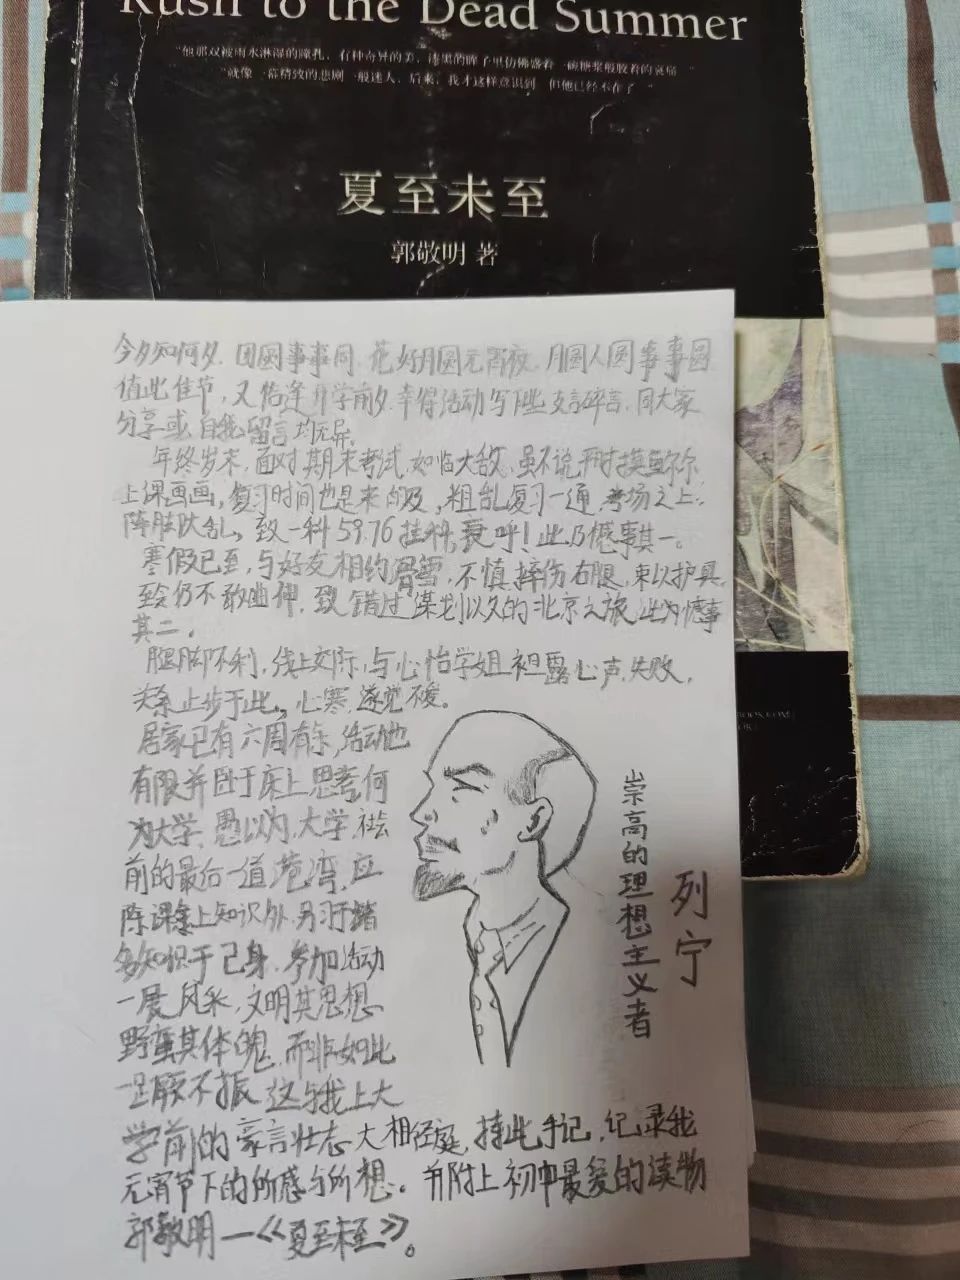 Rush to the Dead Summer
“他那双被雨水淋湿的瞳孔，有种奇异的美，漆黑的眸子里仿佛盛着一碗糖浆般胶着的哀痛
“就像一幕精致的悲剧一般迷人，后来，我才这样意识到，但他已经不在了
夏至未至
郭敬明 著
今夕知何夕，团圆事事同，花好月圆元宵夜，月圆人圆事事圆
值此佳节，又恰逢开学前夕，幸得活动写下些支言碎语，同大家
分享或自我留言均无异。
年终岁末，面对期末考试，如临大敌，虽不说平时摸鱼尔尔
上课画画，复习时间也是来的及，粗乱复习一通，考场之上
阵脚大乱，致一科59.76挂科，哀呼！此乃憾事其一。
寒假已至，与好友相约滑雪，不慎摔伤右腿，束以护具，
至今仍不敢曲伸，致错过谋划以久的北京之旅，此为憾事
其二，
腿脚不利，线上交际，与心怡学姐袒露心声，失败，
关系止步于此，心寒，遂
居家已有六周有余，活动也
有限，并卧于床上思考，何
为大学，愚以为，大学，社会
前的最后一道港湾，应
除课堂上知识外，另习于诸
多知识于己身，参加活动
一展风采，文明其思想
野蛮其体魄，而非如此
一蹶不振，这与我上大
学前的豪言壮志大相径庭，持此手记，记录我
元宵节下的所感与所想。并附上初中最爱的读物
郭敬明—《夏至未至》。
崇高的理想主义者
列宁